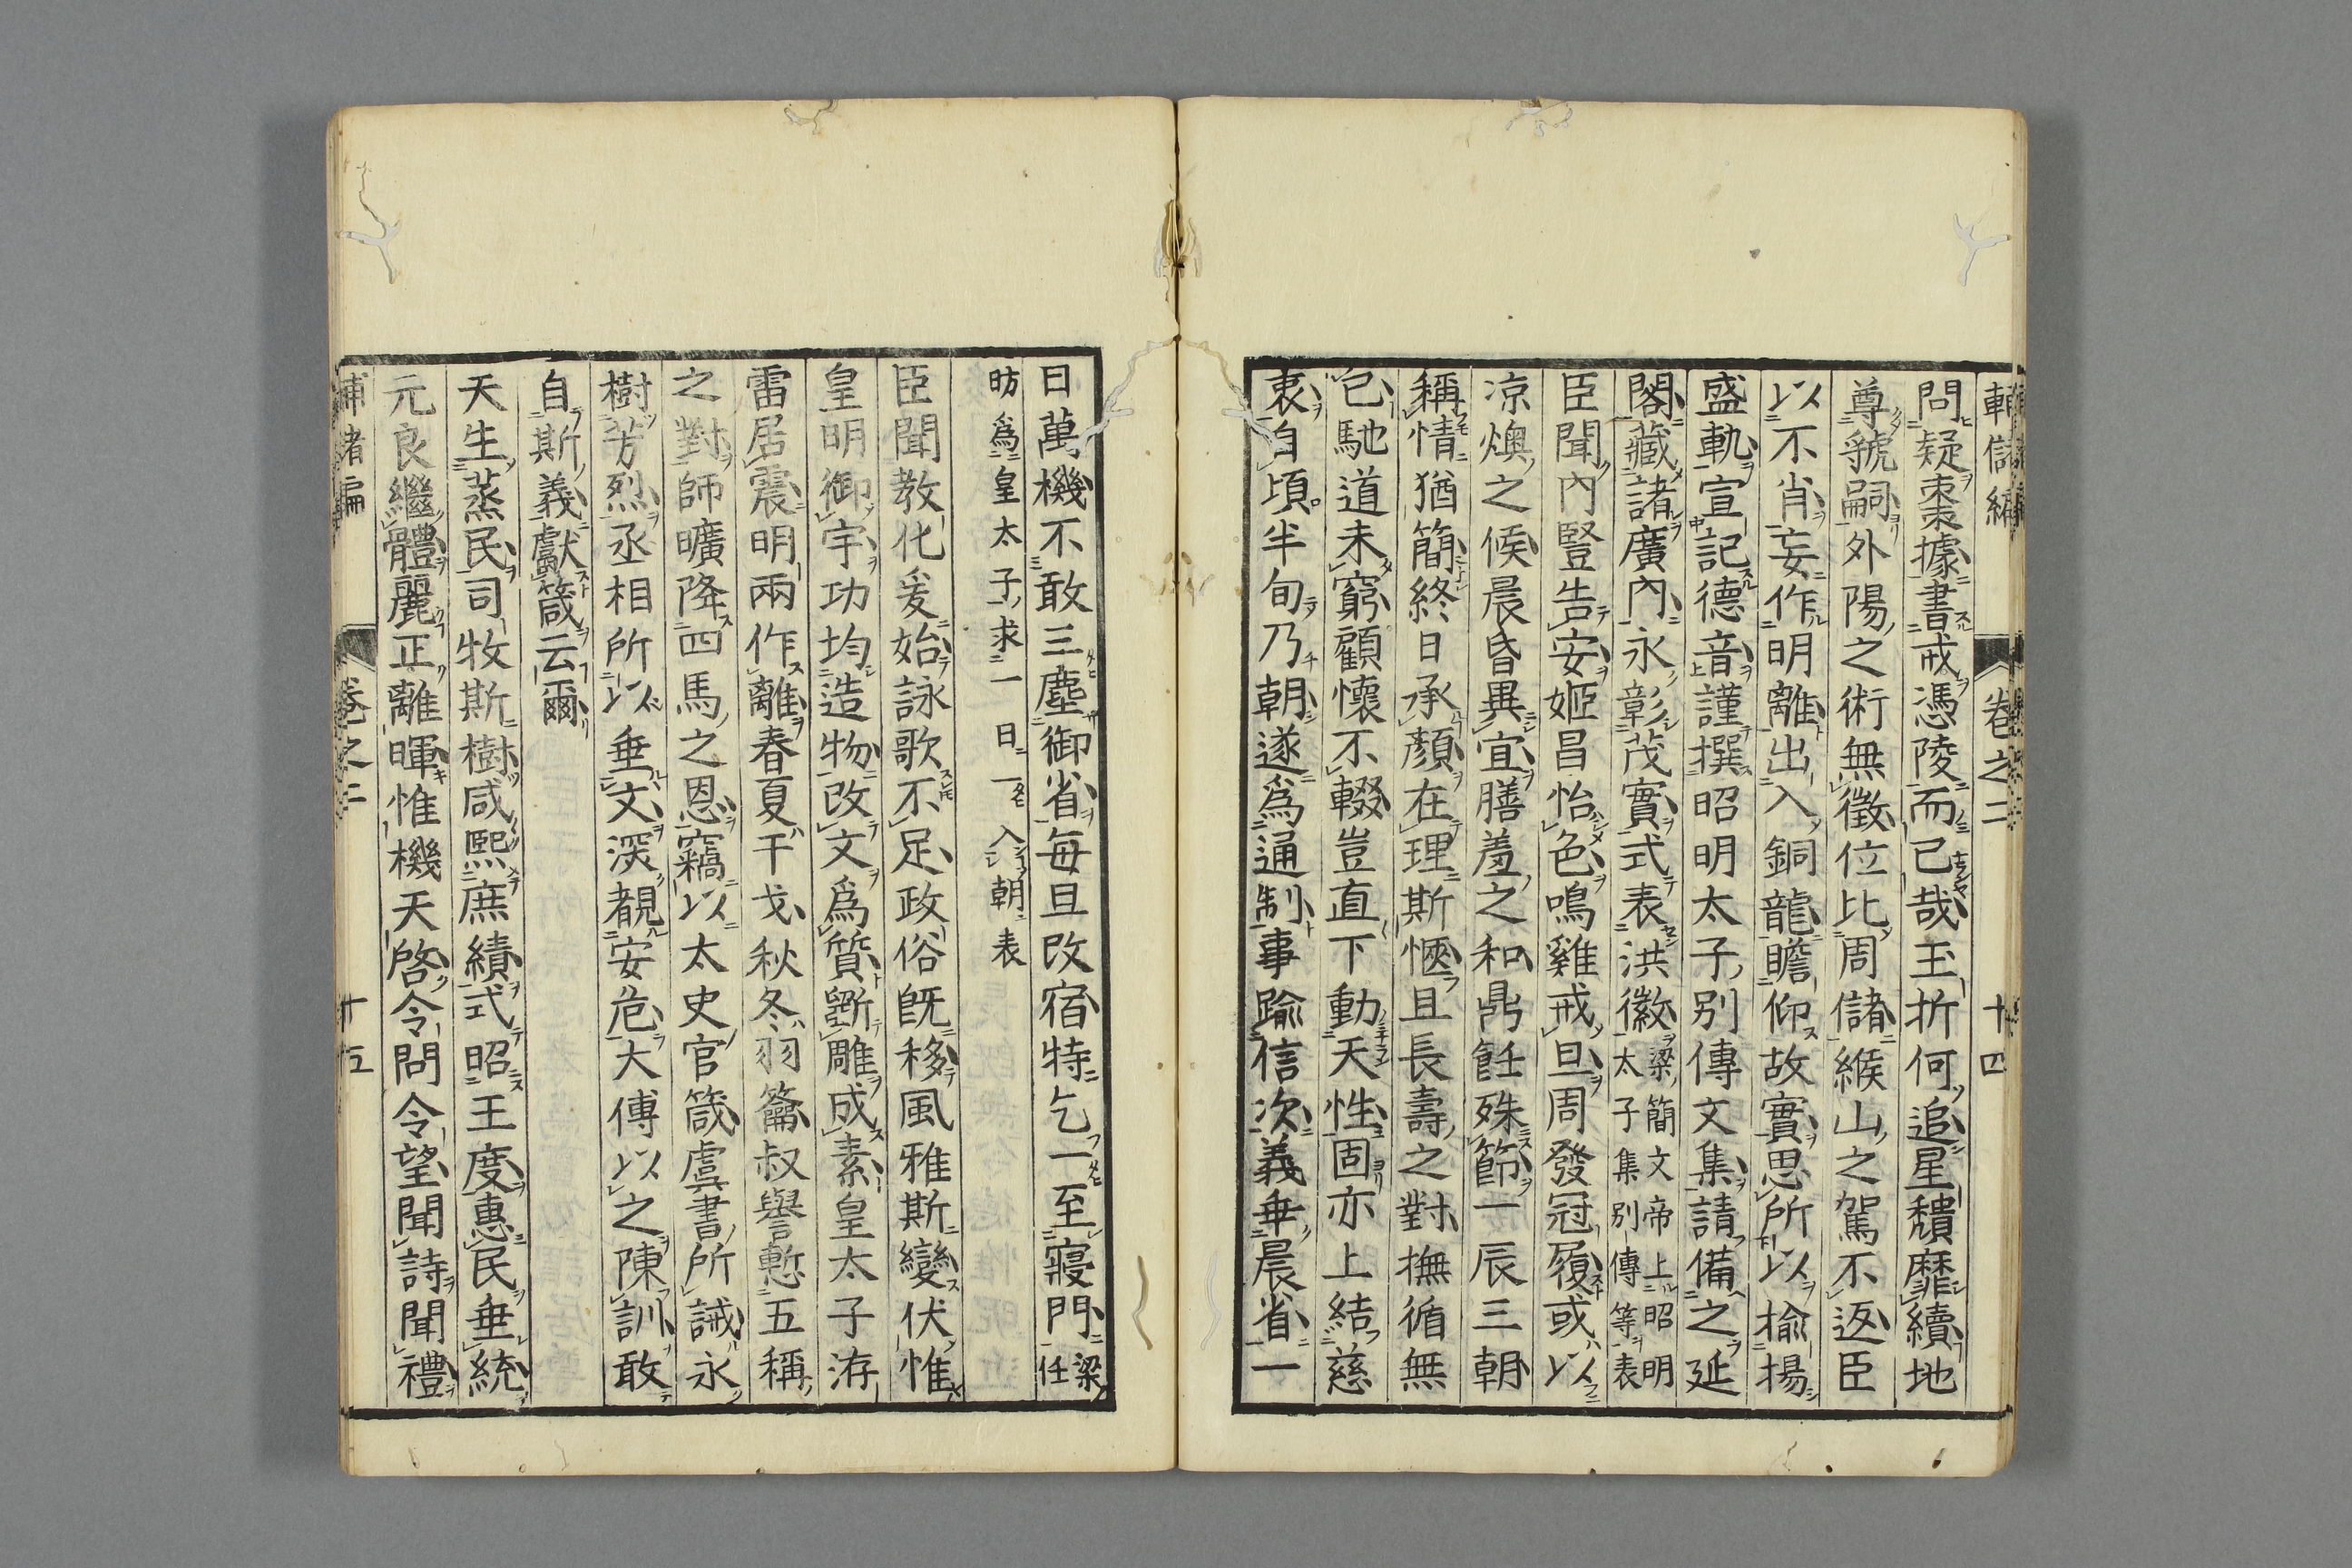 輔儲編 卷之二 十四
問疑棗據書戒憑陵而已哉玉折何追星穨靡續地
尊號嗣外陽之術無徵位比周儲緱山之駕不返臣
以不肖妄作明離出入銅龍瞻仰故實思所以揄揚
盛軌宣記德音謹撰昭明太子別傳文集請備之延
閣藏諸廣內永彰茂實式表洪徽梁簡文帝上昭明太子集別傳等表
臣聞內豎告安姬昌怡色鳴雞戒旦周發冠履或以
凉燠之候晨昏異宜膳羞之和鼎飪殊節一辰三朝
稱情猶簡終日承顏在理斯愜且長壽之對撫循無
已馳道未窮顧懷不輟豈直下動天性固亦上結慈
衷自頃半旬乃朝遂爲通制事踰信次義乖晨省一
日萬機不敢三塵御省每旦改宿特乞一至寢門梁任
昉爲皇太子求一日一入朝表
臣聞教化爰始詠歌不足政俗旣移風雅斯變伏惟
皇明御宇功均造物改文爲質斲雕成素皇太子洊
雷居震明兩作離春夏干戈秋冬羽籥叔譽慙五稱
之對師曠降四馬之恩竊以太史官箴虞書所誡永
樹芳烈丞相所以垂文深覩安危大傅以之陳訓敢
自斯義獻箴云爾
天生蒸民司牧斯樹咸熙庶績式昭王度惠民垂統
元良繼體麗正離暉惟機天啓令問令望聞詩聞禮
輔儲編 卷之二 十五